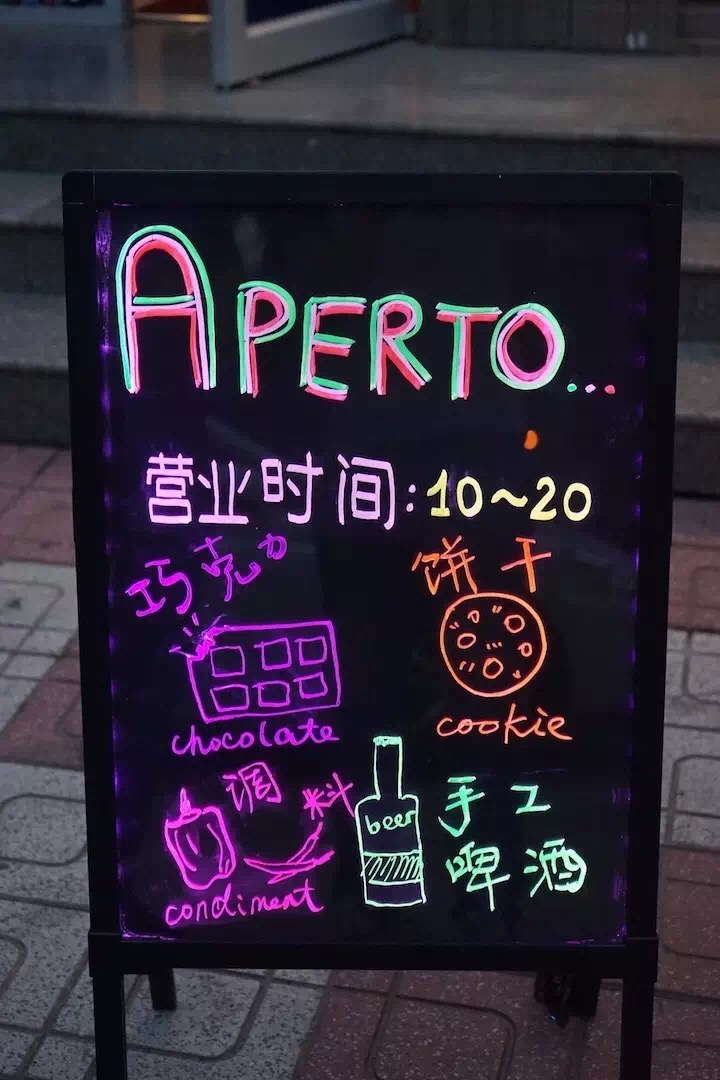 APERTO...
营业时间:10~20
巧克力
chocolate
饼干
cookie
调料
condiment
beer
手工
啤酒